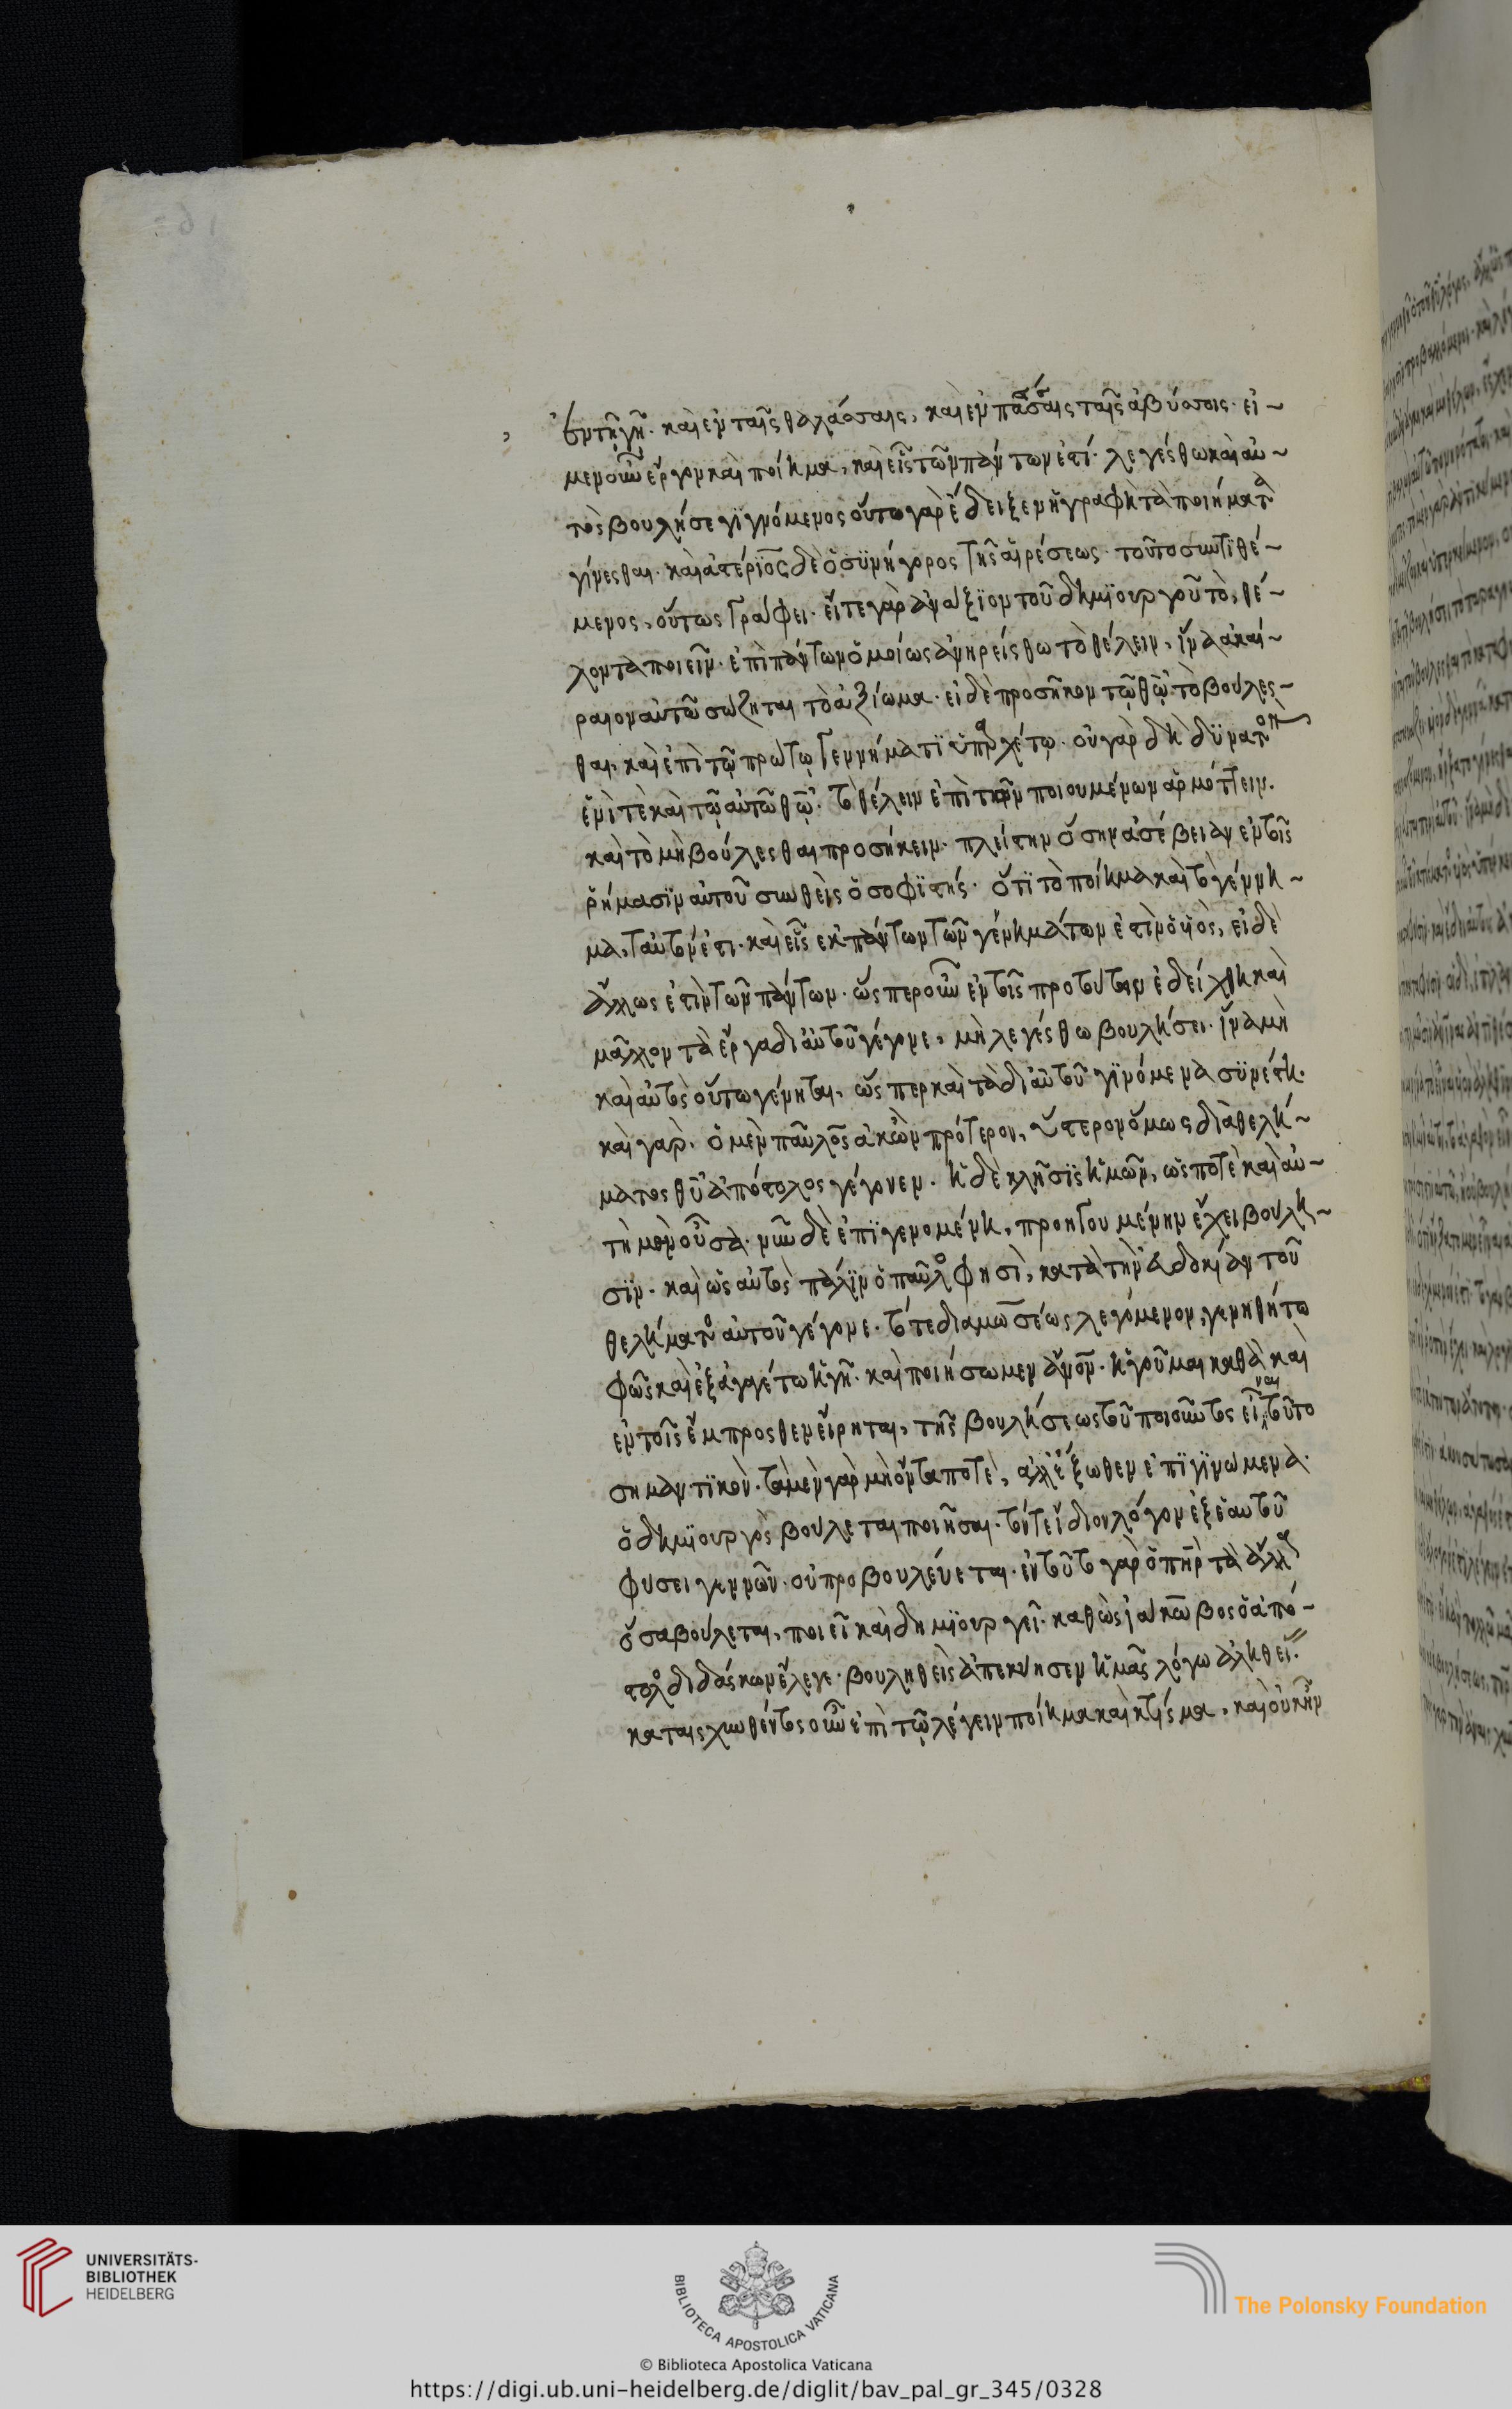 ἐν τῆ γῆ. καὶ ἐν ταῖς θαλάσσαις, καὶ ἐν πάσαις ταῖς ἀβύσσοις. εἰ
μὲν οὖν ἔργον καὶ ποίημα, καὶ εἷς τῶν πάντων ἐστί. λεγέσθω καὶ αὐ
τὸς βουλήσει γϊνόμενος οὕτω γὰρ ἔδειξεν ἡ γραφὴ τὰ ποιήματα
γίνεσθαι. καὶ ἀστέρϊος δὲ ὁ συνήγορος τῆς αἱρέσεως. τοῦτο συντϊθέ
μενος, οὕτως γράφει. εἴτε γὰρ ἀνάξϊον τοῦ δημϊουργοῦ τὸ, θέ
λοντα ποιεῖν. ἐπὶ πάντων ὁμοίως ἀνηρείσθω τὸ θέλειν, ἵνα ἀκαί
ραιον αὐτῶ σώζηται τὸ ἀξίωμα. εἰ δὲ προσῆκον τῶ θῶ τὸ βούλεσ
θαι, καὶ ἐπὶ τῶ πρώτω γεννήματϊ ὑπαρχέτω. οὐ γὰρ δὴ δϋνατὸν
ἑνὶ τὲ καὶ τῶ αὐτῶ θῶ. τὸ θέλειν ἐπὶ τῶν ποιουμένων ἁρμόττειν.
καὶ τὸ μὴ βούλεσθαι προσήκειν. πλείστην ὅσην ἀσέβειαν ἐν τοῖς
ῥήμασϊν αὐτοῦ συνθεὶς ὁ σοφϊστής. ὅτϊ τὸ ποίημα καὶ τὸ γέννη
μα, ταυτόν ἐστι. καὶ εἷς ἐκ πάντων τῶν γενημάτων ἐστὶν ὁ υἱὸς, εἰ δὲ
ἄλλως ἐστὶν τῶν πάντων. ὥσπερ οὖν ἐν τοῖς πρὸ τούτων ἐδείχθη καὶ
μᾶλλον τὰ ἔργα δι αὐτοῦ γέγονε, μὴ λεγέσθω βουλήσει. ἵνα μὴ
καὶ αὐτὸς οὕτω γένηται, ὥσπερ καὶ τὰ δι αὐτοῦ γϊνόμενα σϋνέστη.
καὶ γὰρ. ὁ μὲν παῦλος ἀκὼν πρότερον, ὕστερον ὅμως διὰ θελή
ματος θῦ ἀπόστολος γέγονεν. ἡ δὲ κλῆσϊς ἡμῶν, ὥς ποτὲ καὶ αὐ
τὴ μὴ οὖσα. νῦν δὲ ἐπϊγενομένη, προηγουμένην ἔχει βούλη
σϊν. καὶ ὡς αὐτὸς πάλϊν ὁ παῦλος φησὶ, κατὰ τὴν εὐδοκίαν τοῦ
θελήματος αὐτοῦ γέγονε. τό τε διὰ μωσέως λεγόμενον, γενηθήτω
φῶς καὶ ἐξαγαγέτω ἡ γῆ. καὶ ποιήσωμεν ἄνον. ἡγοῦμαι καθὰ καὶ
ἐν τοῖς ἔμπροσθεν εἴρηται, τῆς βουλήσεως τοῦ ποιοῦντος εἶναι τοῦτο
σημαντϊκὸν. τὰ μὲν γὰρ μὴ ὄντα ποτὲ, ἀλλ' ἔξωθεν ἐπϊγϊνώμενα.
ὁ δημϊουργὸς βούλεται ποιῆσαι. τόν τε ἴδιον λόγον ἐξ ἑαυτοῦ
φύσει γεννῶν. οὐ προβουλεύεται. ἐν τοῦτο γὰρ ὁ πὴρ τὰ ἄλλα
ὅσα βούλεται, ποιεῖ καὶ δημϊουργεῖ. καθὼς ἰάκωβος ὁ ἀπό
στολος διδάσκων ἔλεγε. βουληθεὶς ἀπεκύησεν ἡμᾶς λόγω ἀληθείας
καταισχυνθέντες οὖν ἐπὶ τῶ λέγειν ποίημα καὶ κτίσμα, καὶ οὐκ ἦν
UNIVERSITÄTS-
BIBLIOTHEK
HEIDELBERG
BIBLIOTECA APOSTOLICA VATICANA
The Polonsky Foundation
© Biblioteca Apostolica Vaticana
https://digi.ub.uni-heidelberg.de/diglit/bav_pal_gr_345/0328